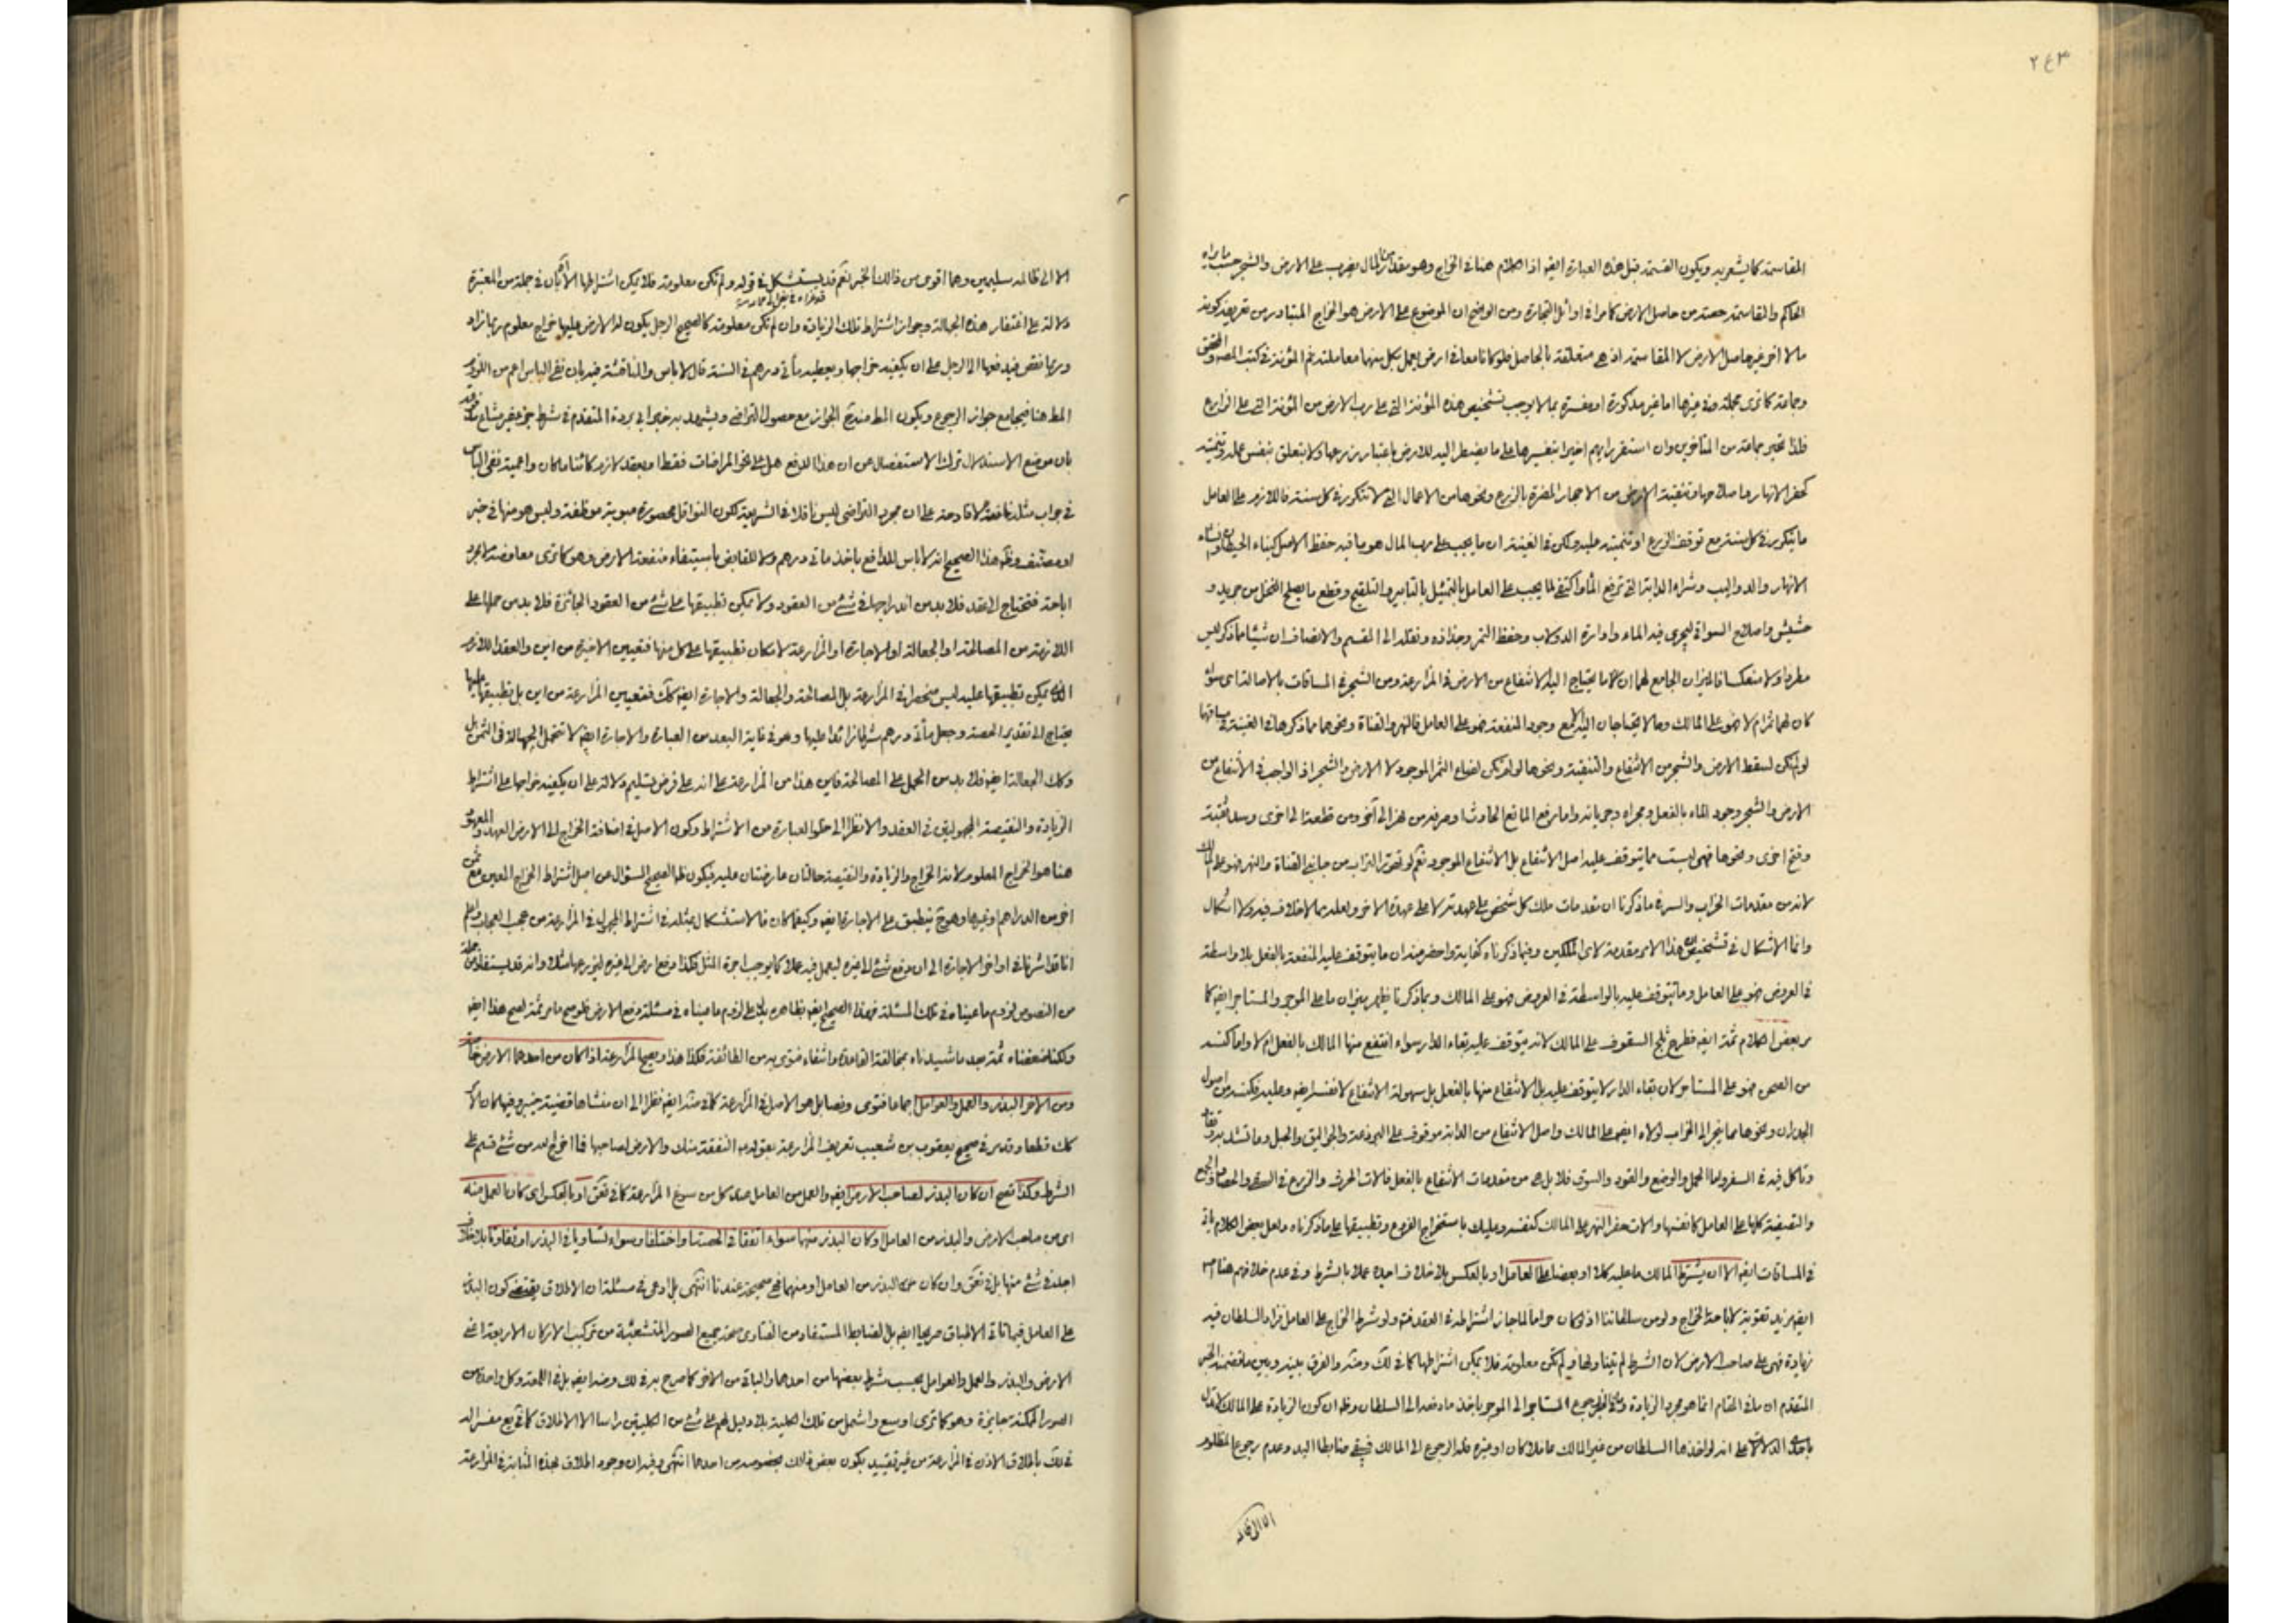 ٢٤٣
المقاسمة كما يشعر به ويكون القسمة قبل هذه العبارة ايضا اذ الكلام هنا في الخراج وهو مقدار من المال يضرب على الارض والشجر حسب ما يراه
الحاكم والمقاسمة حصة من حاصل الارض كما مر في اوائل التجارة ومن الواضح ان الموضوع على الارض هو الخراج المتبادر من تعريفه كونه
مالا اخر غير حاصل الارض لا المقاسمة اذ هي متعلقة بالحاصل فلو كانا معا في ارض يعمل بكل منهما معاملته ثم المؤنة في كتب المصنف والمحقق
وجماعة كما ترى مجملة وفي غيرها اما غير مذكورة او مفسرة بما لا يوجب تشخيص هذه المؤنة التي على رب الارض من المؤنة التي على الزارع
فلذا تحير جماعة من المتاخرين وان استقر رايهم اخيرا بتفسيرها على ما يضطر اليه للارض باعتبار زرعها ولا يتعلق بنفس عمله وتنميته
كحفر الانهار واصلاحها وتنقية الارض من الاحجار المضرة بالزرع ونحوها من الاعمال التي لا تتكرر في كل سنة فاللازم على العامل
ما يتكرر في كل سنة مع توقف الزرع او تنميته عليه ولكن في الغنية ان ما يجب على رب المال هو ما فيه حفظ الاصل كبناء الحيطان وانشاء
الانهار والدواليب وشراء الدابة التي ترفع الماء واكتفى لما يجب على العامل بالتمثيل بالتابير والتلقيح وقطع ما يصلح النخل من جريد و
حشيش واصلاح السواقي ليجري فيه الماء وادارة الدولاب وحفظ الثمر وجذاذه ونقله الى المقسم والانصاف ان شيئا مما ذكر ليس
مطردا ولا منعكسا فالميزان الجامع لهما ان كلما يحتاج اليه الانتفاع من الارض في المزارعة ومن الشجر في المساقات بالاصالة اي سواء
كان لهما ثمر ام لا فهو على المالك وما لا يحتاجان اليه الا مع وجود المنفعة فهو على العامل فالنهر والقناة ونحوهما مما ذكرها في الغنية في مساقاتها
لو لم يكن لسقط الارض والشجر من الانتفاع والتنقية ونحوها لو لم يكن لضاع الثمر الموجود لا الارض والشجر اذ الواجب في الانتفاع من
الارض والشجر وجود الماء بالفعل ومجراه وجريانه واما رفع المانع الحادث او صرفه من نهر الى آخر ومن قطعة الى اخرى وسد ثقبة
وفتح اخرى ونحوها فهي ليست مما يتوقف عليه اصل الانتفاع بل الانتفاع الموجود نعم لو تهور التراب من جانبي القناة والنهر فهو على المالك
لانه من مقدمات الخراب والسر في ما ذكرنا ان مقدمات ملك كل شخص على عهدته لا على عهدة الاخر ولعله مما لا خلاف فيه ولا اشكال
وانما الاشكال في تشخيص ان هذا الامر مقدمة لاي الملكين وفيما ذكرناه كفاية واخصر منه ان ما يتوقف عليه المنفعة بالفعل بلا واسطة
في العروض فهو على العامل وما يتوقف عليه بالواسطة في العروض فهو على المالك وبما ذكرنا يظهر ميزان ما على الموجر والمستاجر ايضا كما
مر بعض الكلام ثمة ايضا فطرح ثلج السقوف على المالك لانه يتوقف عليه بقاء الدار سواء انتفع منها المالك بالفعل ام لا واما كنسه
من الصحن فهو على المستاجر لان بقاء الدار لا يتوقف عليه بل الانتفاع منها بالفعل بل سهولة الانتفاع لا نفسه ايضا وعليه فكنسه من اصول
الجدران ونحوها مما ينجر الى الخراب لولاه ايضا على المالك واصل الانتفاع من الدابة موقوف على البرذعة والجواليق والحبل وما تشد به وبقاء
وتاكل فيه في السفر واما الحمل والوضع والقود والسوق فلا بل هي من مقدمات الانتفاع بالفعل فالات الحرث والزرع في السقي والحصاد والجمع
والتصفية كلها على العامل كانفسها والات حفر النهر على المالك كنفسه وعليك باستخراج الفروع وتطبيقها على ما ذكرناه ولعل بعض الكلام ياتي
في المساقات ايضا الا ان يشترط المالك ما عليه كلا او بعضا على العامل او بالعكس بلا خلاف اجده عملا بالشرط وفي عدم خلافهم هنا
ايضا مزيد تقوية لاباحة الخراج ولو من سلاطيننا اذ لو كان حراما لما جاز اشتراطه في العقد فتم ولو شرط الخراج على العامل فزاد السلطان فيه
زيادة فهي على صاحب الارض لان الشرط لم يتناولها ولم تكن معلومة فلا يمكن اشتراطها كما في لك وضه والفرق بينه وبين ما تضمنه الخبر
المتقدم ان ما في المقام انما هو مجرد الزيادة وما في الخبر رجوع المستاجر الى الموجر باخذ ما دفعه الى السلطان وظ ان كون الزيادة على المالك لا تدل
باحدى الدلالات على انه لو اخذها السلطان من غير المالك عاملا كان او غيره فله الرجوع الى المالك فبقي ضابطة اليد وعدم رجوع المظلوم
الا الى ظالمه
الا الى ظالمه سليمين وهما اقوى من ذلك الخبر نعم قد يستشكل في قوله ولم تكن معلومة فلا يمكن اشتراطها الا ان في جملة من المعتبرة
دلالة على اغتفار هذه الجهالة وجواز اشتراط تلك الزيادة وان لم تكن معلومة كالصحيح الرجل يكون له الارض عليها خراج معلوم ربما زاد
وربما نقص فيدفعها الى الرجل على ان يكفيه خراجها ويعطيه مأتي درهم في السنة قال لا باس والمناقشة فيه بان نفي الباس اعم من اللزوم
المط هنا فيجامع جواز الرجوع ويكون المط منه ح الجواز مع حصول التراضي ويشهد به خبر ابي بردة المتقدم في شرط جزء غير مشاع
بان موضع الاستدلال ترك الاستفصال عن ان هذا الدفع هل على نحو المراضات فقط او بعقد لازم كائنا ما كان واعمية نفي الباس
في جواب مثله نافعة لا قادحة على ان مجرد التراضي ليس ناقلا في الشريعة لكون النواقل محصورة مبوبة موظفة وليس هو منها في خبر
او مصنف وظ هذا الصحيح انه لا باس للدافع باخذ مأتي درهم ولا للقابض باستيفاء منفعة الارض وهو كما ترى معاوضة لا مجرد
اباحة فتحتاج الى عقد فلا بد من اندراجها في شئ من العقود ولا يمكن تطبيقها على شئ من العقود الجائزة فلا بد من حملها على
اللازمة من المصالحة او الجعالة او الاجارة او المزارعة لامكان تطبيقها على كل منها فتعيين الاخيرة من اين والعقد اللازم
الذي يمكن تطبيقها عليه ليس منحصرا في المزارعة بل المصالحة والجعالة والاجارة ايضا كك فتعيين المزارعة من اين بل تطبيقها عليها
يحتاج الى تقدير الحصة وجعل مأتي درهم شرطا زائدا عليها وهو في غاية البعد من العبارة والاجارة ايضا لا تتحمل الجهالة في الثمن بل
وكك الجعالة ايضا فلا بد من الحمل على المصالحة فاين هذا من المزارعة على انه على فرض تسليم دلالة على ان يكفيه خراجها على اشتراط
الزيادة والنقيصة المجهولتين في العقد والا نظرا الى خلو العبارة من الاشتراط وكون الاصل في اضافة الخراج الى الارض العهد والمعهود
هنا هو الخراج المعلوم لانه الخراج والزيادة والنقيصة حالتان عارضتان عليه فيكون ظ الصحيح السؤال عن اصل اشتراط الخراج المعين مع ثمن
اخر من الدراهم او غيرها وهو ح ينطبق على الاجارة ايضا وكيفما كان فالاستشكال بمثله في اشتراط المجهول في المزارعة من عجب العجاب واعلم
انا قد اشرنا في اواخر الاجارة الى ان دفع شئ الى غيره ليعمل فيه عملا كما يوجب اجرة المثل فكذا دفع ارض الى غيره ليزرعها مثلا وانه قد يستفاد من جملة
من النصوص لزوم ما عيناه في تلك المسئلة فهذا الصحيح ايضا بظاهره يدل على لزوم ما عيناه في مسئلة دفع الارض فلو صح ما مر ثمة لصح هذا ايضا
ولكنا ضعفناه ثمة بعد ما شيدناه بمخالفة القاعدة وانتفاء فتوى به من الطائفة فكذا هذا ويصح المزارعة اذا كان من احدهما الارض خاصة
ومن الاخر البذر والعمل والعوامل اجماعا فتوى ونصا بل هو الاصل في المزارعة كما في ضه ايضا نظرا الى ان منشاها قضية خيبر وفيها كان الامر
كك قطعا وقد مر في صحيح يعقوب بن شعيب تعريف المزارعة بقوله ع النفقة منك والارض لصاحبها فما اخرج الله من شئ قسم على
الشرط وكذا تصح ان كان البذر لصاحب الارض ايضا والعمل من العامل صدى كل من سوغ المزارعة كما في تعق او بالعكس اي كان العمل منه
اي من صاحب الارض والبذر من العامل او كان البذر منهما سواء اتفقا في الحصة او اختلفا وسواء تساويا في البذر او تفاوتا بلا خلاف
اجده في شئ منها بل في تعق وان كان البذر من العامل او منهما فهي صحيحة عندنا انتهى بل ادعى في مسئلة ان الاطلاق يقتضي كون البذر
على العامل فيما ياتي الاطباق صريحا ايضا بل الضابط المستفاد من الفتاوى صحة جميع الصور المتشعبة من تركيب الاركان الاربعة اعني
الارض والبذر والعمل والعوامل بحسب شرط بعضها من احدهما والباقي من الاخر كما صرح به في لك وضه ايضا بل في اللمعة وكل واحدة من
الصور الممكنة جايزة وهو كما ترى اوسع واشمل من تلك الكلية بلا دليل لهم على شئ من الكليتين راسا الا الاطلاق كما في
في لك باطلاق الاذن في المزارعة من غير تقييد بكون بعض ذلك بخصوصه من احدهما انتهى وفيه ان وجود اطلاق بهذه المثابة في المزارعة